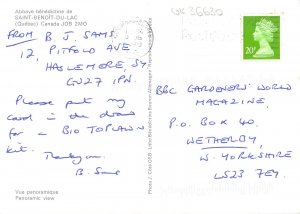 Abbaye bénédictine de
SAINT-BENOÎT-DU-LAC
(Québec) Canada J0B 2M0
FROM B. J. SAMS
12, PITFOLD AVE
HASLEMERE SY
GU27 1PN.
Please put my
card in the draw
for a
BIO TOPLAWN
kit.
Thankyou
B. Sams
Vue panoramique
Panoramic view
UK 36630
20P
BBC GARDENERS' WORLD
MAGAZINE,
P.O. BOX 40.
WETHERBY
W. YORKSHIRE
LS23 7EY.